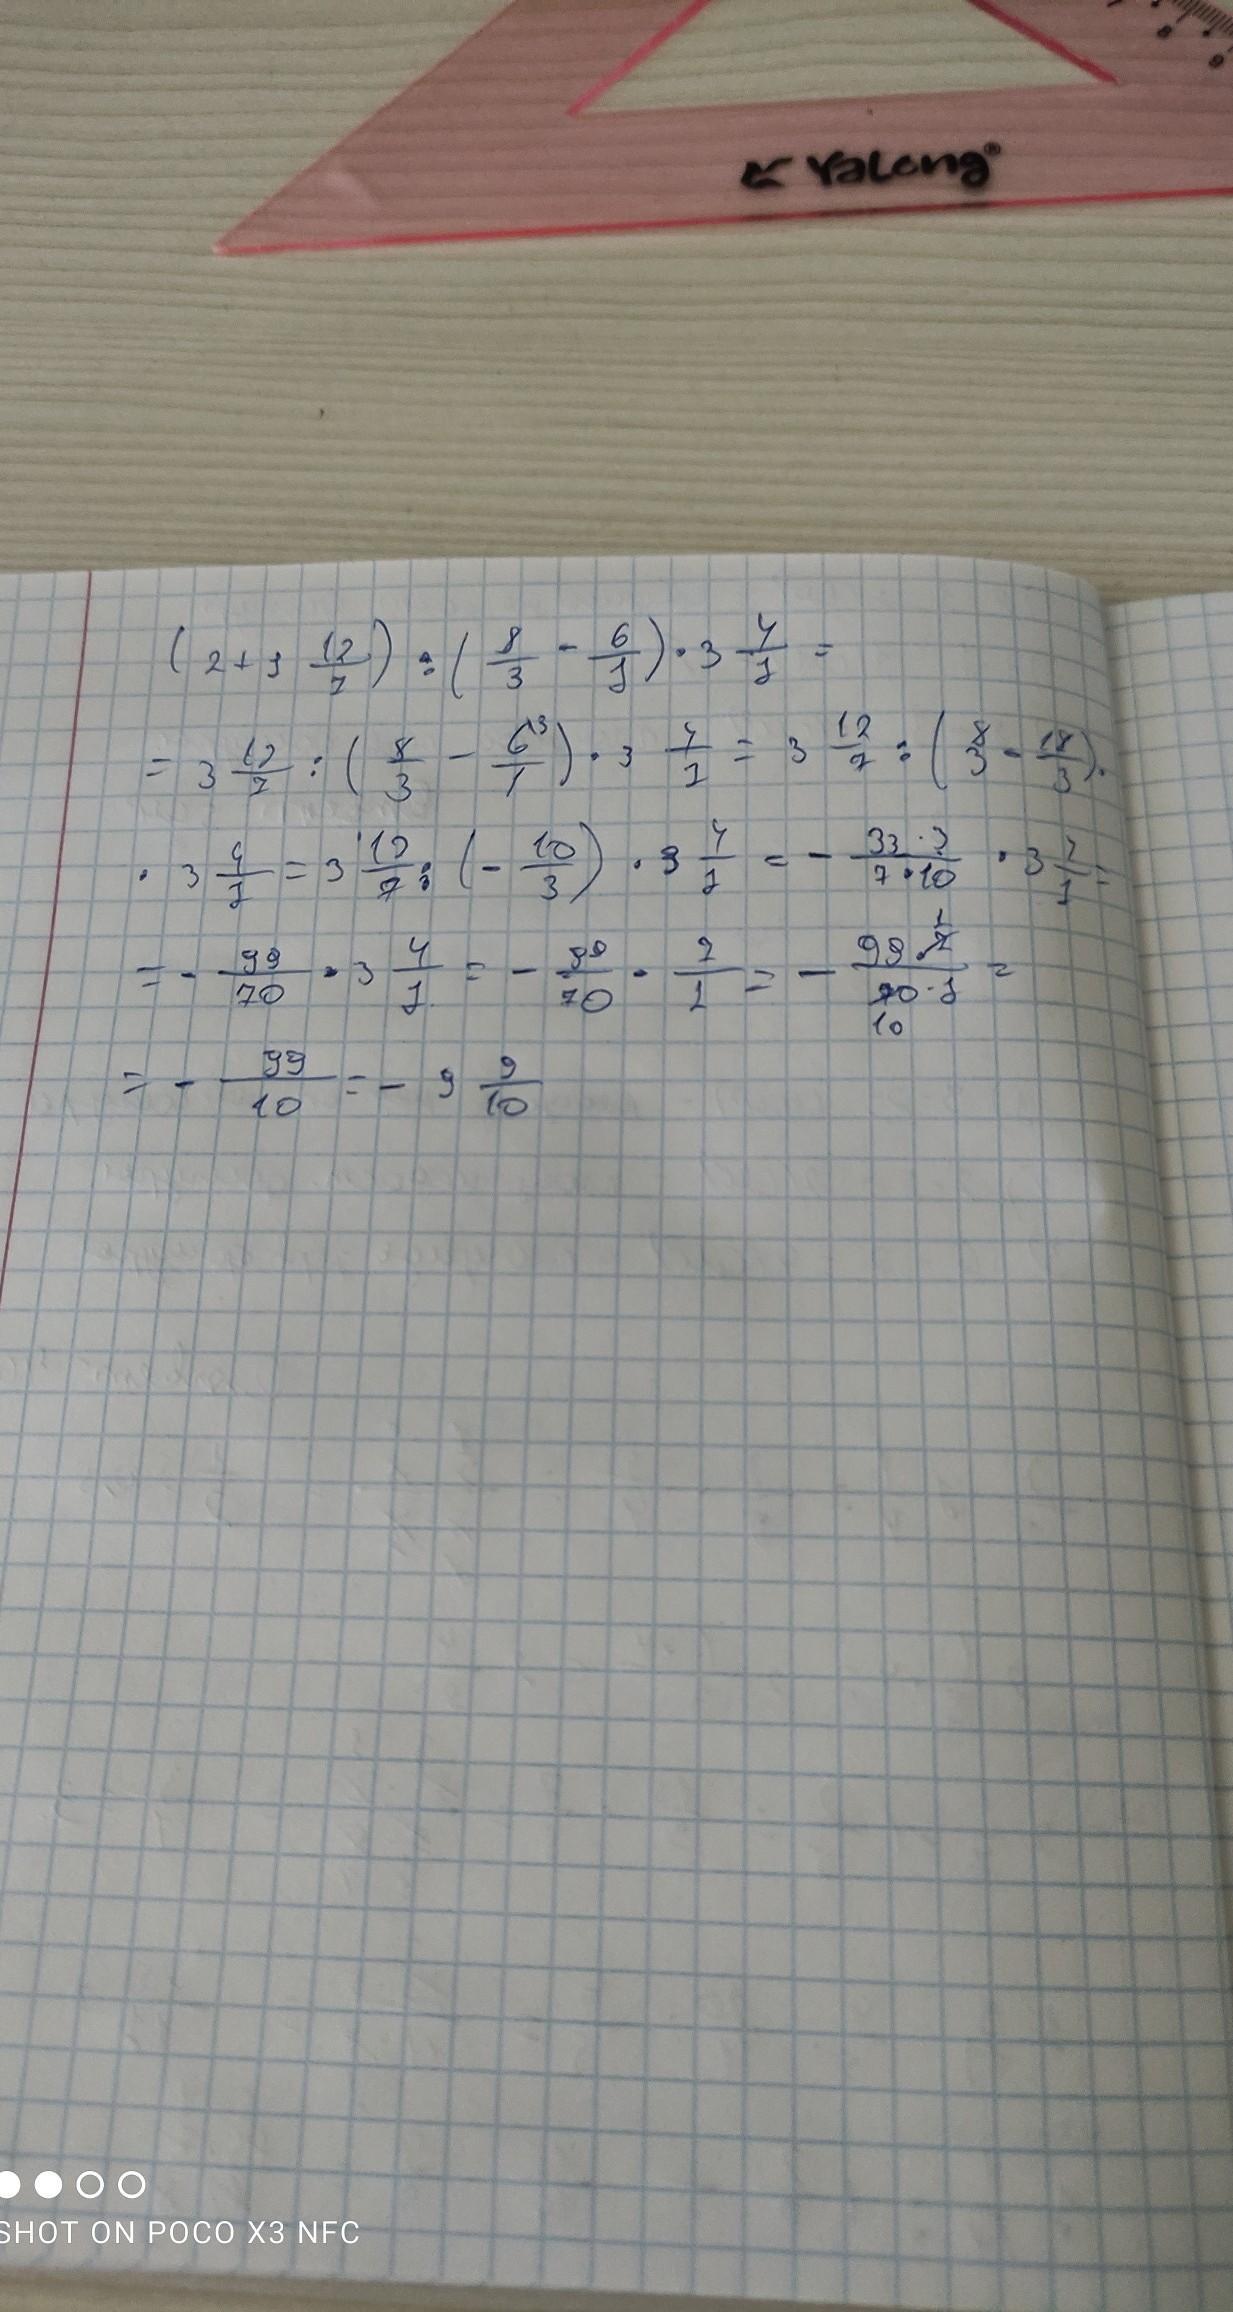 Yalong®
(2 + 1 12/7) : (8/3 - 6/1) · 3 4/1 =
= 3 12/7 : (8/3 - 6^3/1) · 3 4/1 = 3 12/7 : (8/3 - 18/3) ·
· 3 4/1 = 3 12/7 : (- 10/3) · 3 4/1 = - 33·3/7·10 · 3 4/1 =
= - 99/70 · 3 4/1 = - 99/70 · 7/1 = - 99·7/70·1 =
1
10
= - 99/10 = - 9 9/10
SHOT ON POCO X3 NFC